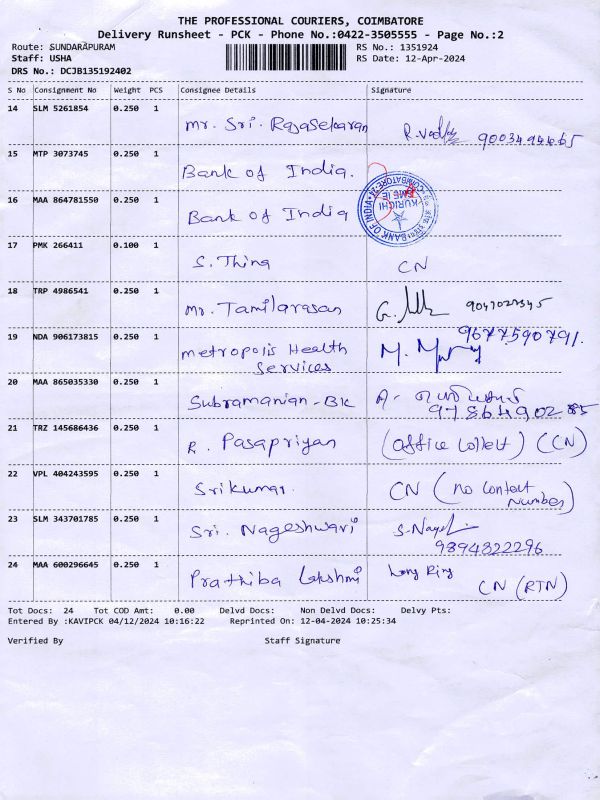 THE PROFESSIONAL COURIERS, COIMBATORE
Delivery Runsheet - PCK - Phone No.:0422-3505555 - Page No.:2
Route: SUNDARAPURAM RS No.: 1351924
Staff: USHA RS Date: 12-Apr-2024
DRS No.: DCJB135192402
S No Consignment No Weight PCS Consignee Details Signature
14 SLM 5261854 0.250 1 Mr. Sri. Rajasekaran 9003494465
15 MTP 3073745 0.250 1 Bank of India.
16 MAA 864781550 0.250 1 Bank of India
17 PMK 266411 0.100 1 S. Thina CN
18 TRP 4986541 0.250 1 Mr. Tamilarasan
19 NDA 906173815 0.250 1 Metropolis Health 9677590791.
Services
20 MAA 865035330 0.250 1 Subramanian - Bk
9786490285
21 TRZ 145686436 0.250 1 R. Pasapriyan (Office Collect) (CN)
22 VPL 404243595 0.250 1 Srikumar. CN (No Contact
Number)
23 SLM 343701785 0.250 1 Sri. Nageshwari
9894322296
24 MAA 600296645 0.250 1 Prathiba Lakshmi Long Ring
CN (RTN)
Tot Docs: 24 Tot COD Amt: 0.00 Delvd Docs: Non Delvd Docs: Delvy Pts:
Entered By :KAVIPCK 04/12/2024 10:16:22 Reprinted On: 12-04-2024 10:25:34
Verified By Staff Signature